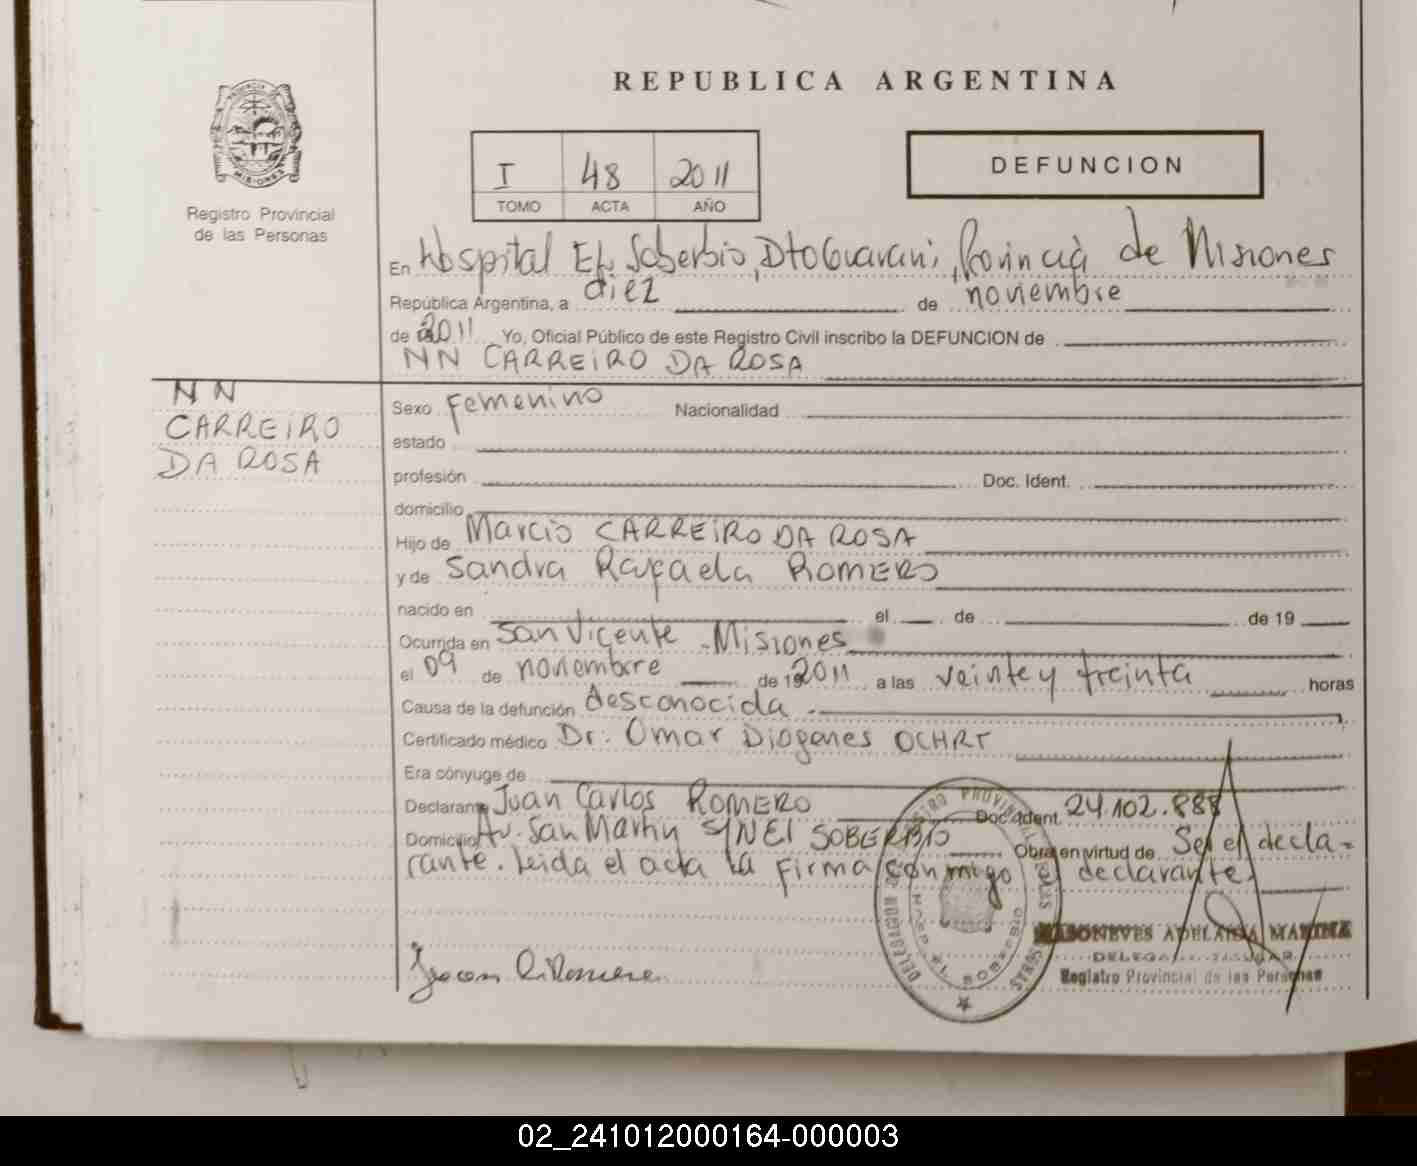 REPUBLICA ARGENTINA
PROVINCIA DE
MISIONES
Registro Provincial
de las Personas
I 48 2011
TOMO ACTA AÑO
DEFUNCION
En Hospital El Soberbio, Dto Guarani, Provincia de Misiones
República Argentina, a diez de noviembre
de 2011 Yo, Oficial Público de este Registro Civil inscribo la DEFUNCION de
NN CARREIRO DA ROSA
NN
CARREIRO
DA ROSA
Sexo Femenino Nacionalidad
estado
profesión Doc. Ident.
domicilio
Hijo de Marcio CARREIRO DA ROSA
y de Sandra Rafaela ROMERO
nacido en el de de 19
Ocurrida en San Vicente - Misiones
el 09 de noviembre de 19 2011 a las veinte y treinta horas
Causa de la defunción desconocida.
Certificado médico Dr. Omar Diogenes OCHRT
Era cónyuge de
Declarante Juan Carlos ROMERO Doc. Ident. 24.102.888
Domicilio Av. San Martin S/N El SOBERBIO Obra en virtud de Ser el decla-
rante. leida el acta la firma conmigo el declarante.
ADELAIDA MARINA
Registro Provincial de las Personas